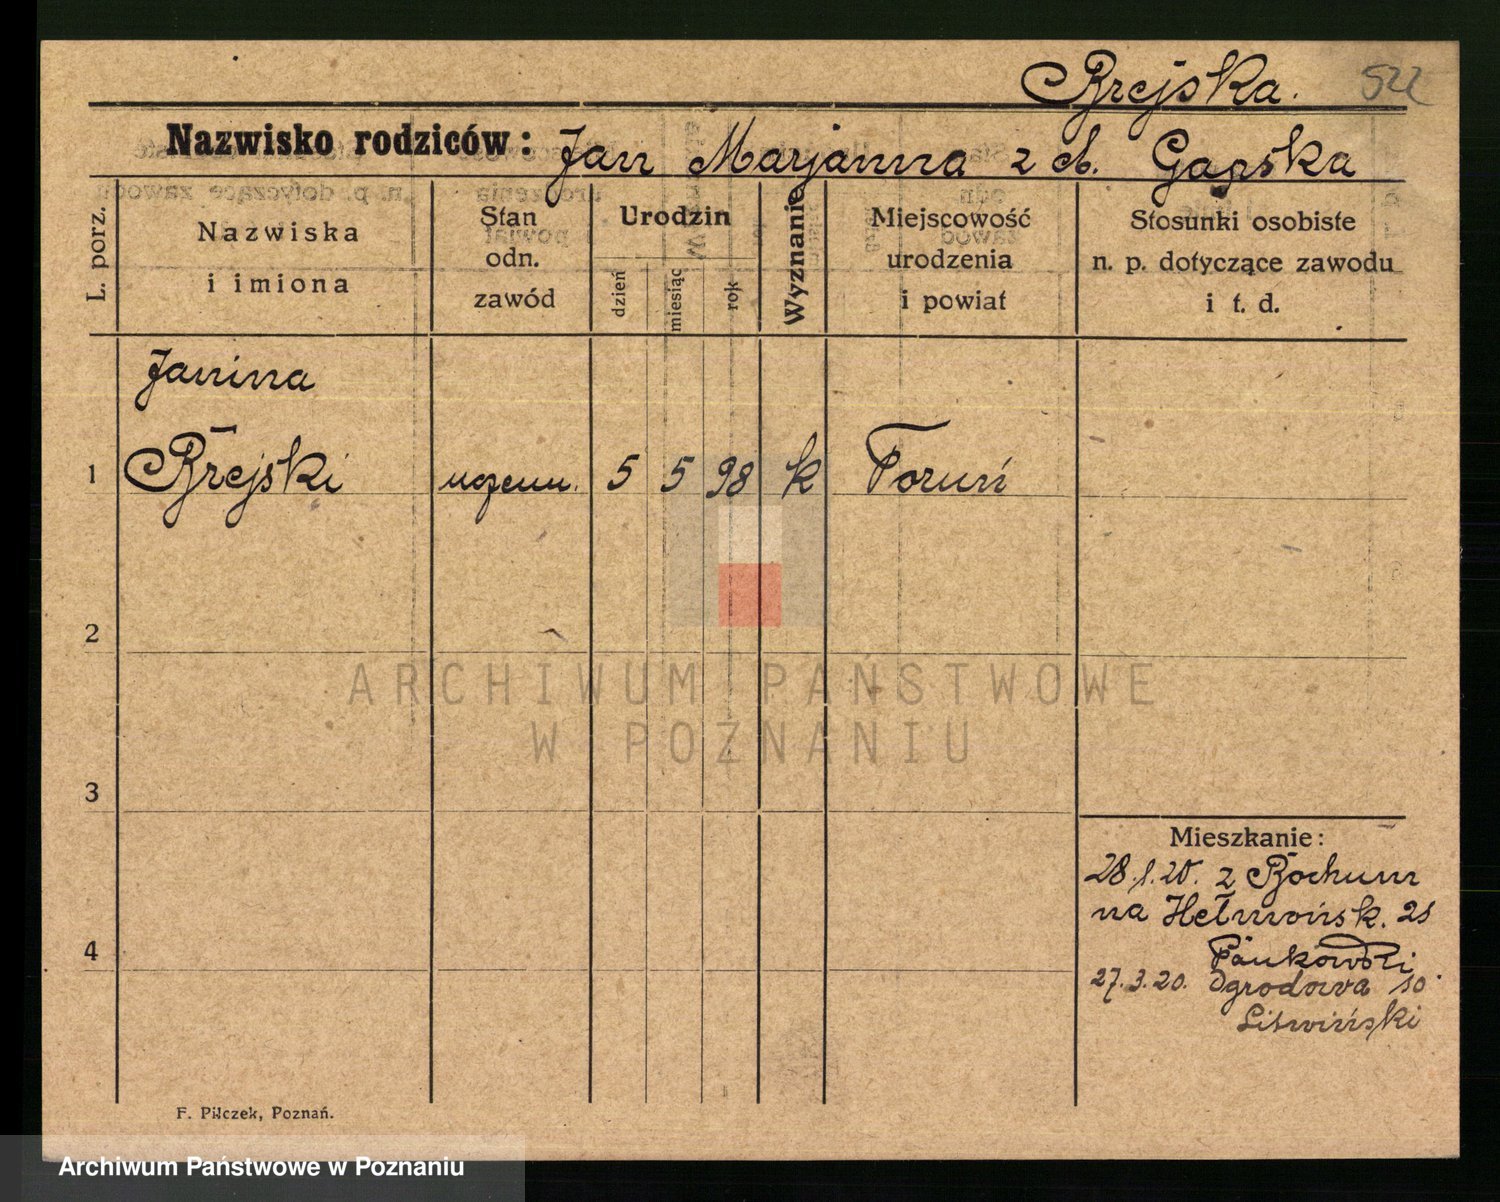 Brejska. 522
Nazwisko rodziców: Jan Marjanna z d. Gapska
L. porz.
Nazwiska
i imiona
Stan
odn.
zawód
Urodzin
dzień
miesiąc
rok
Wyznanie
Miejscowość
urodzenia
i powiat
Stosunki osobiste
n. p. dotyczące zawodu
i t. d.
Janina
1 Brejski 5 5 98 k Toruń
2
3
4
Mieszkanie:
28.1.20. z Bochum
na Hełmońsk. 21
27.3.20. Ogrodowa 10.
Litwiński
F. Pilczek, Poznań.
ARCHIWUM PAŃSTWOWE
W POZNANIU
Archiwum Państwowe w Poznaniu